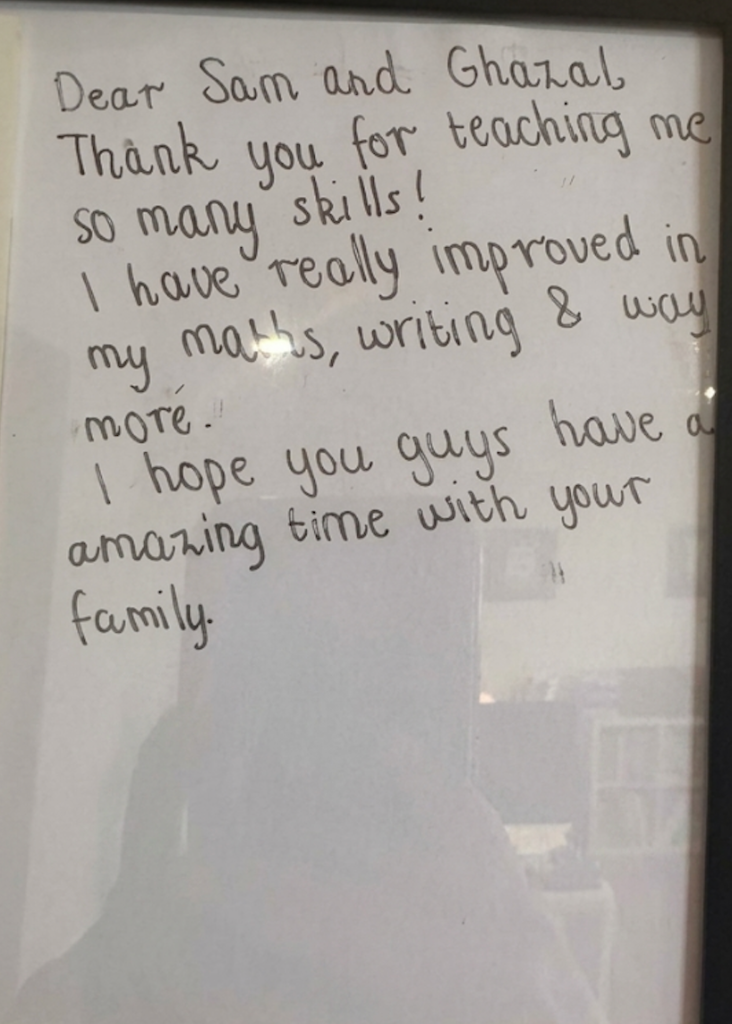 Dear Sam and Ghazal,
Thank you for teaching me
so many skills!
I have really improved in
my maths, writing & way
more.
I hope you guys have a
amazing time with your
family.